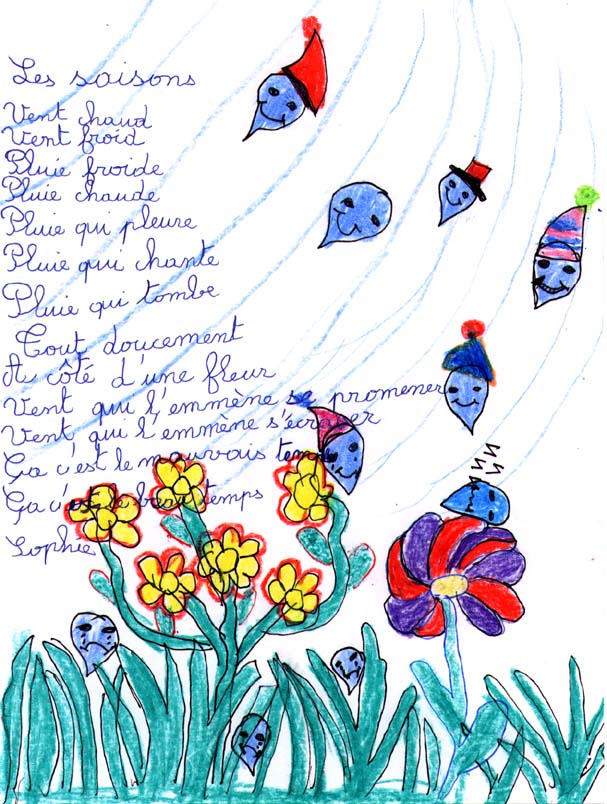 Les saisons
Vent chaud
Vent froid
Pluie froide
Pluie chaude
Pluie qui pleure
Pluie qui chante
Pluie qui tombe
Tout doucement
A côté d'une fleur
Vent qui l'emmène se promener
Vent qui l'emmène s'écraser
Ça c'est le mauvais temps
Ça c'est le beau temps
Sophie
ZZZZ